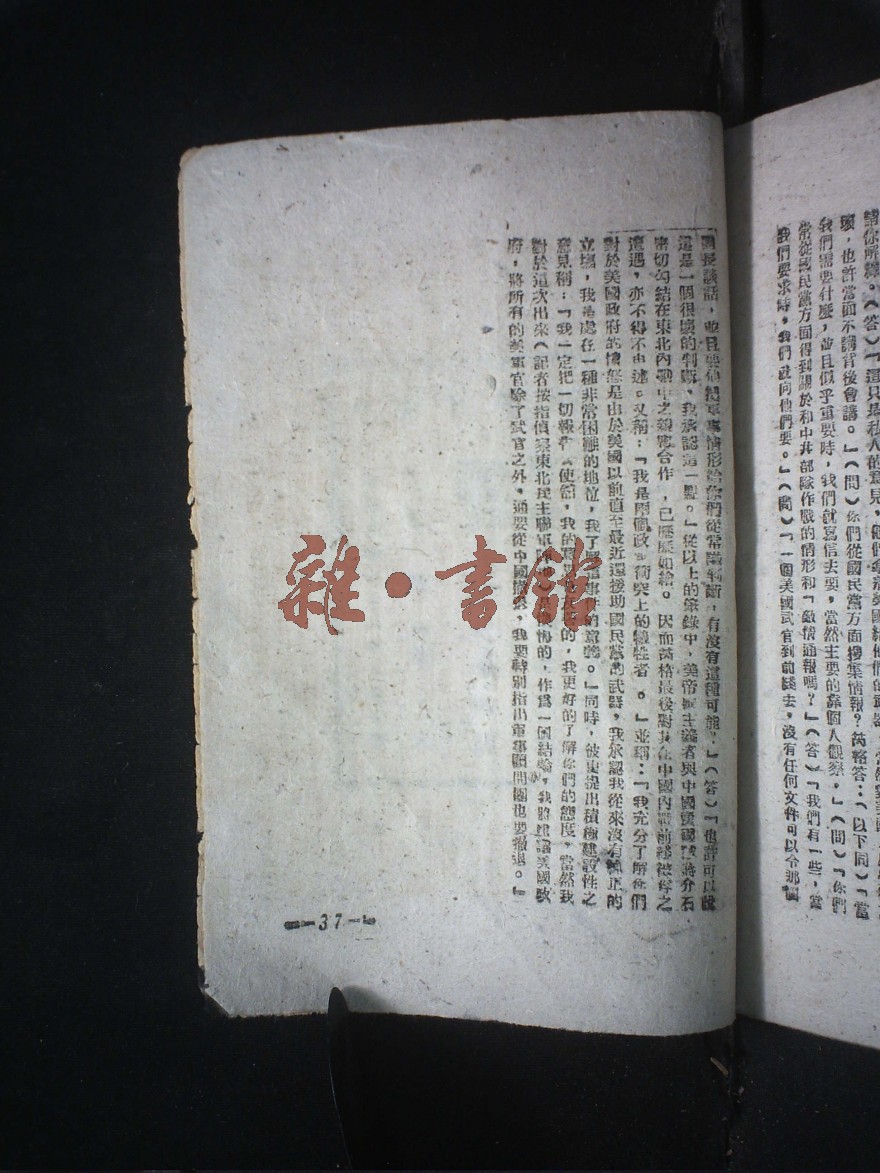 請你解釋。（答）「這只是私人的意見，
壞，也許當面不講背後會講。」（問）你們從國民黨方面搜集情報？芮格答：（以下同）「當
我們需要什麼，並且似乎重要時，我們就寫信去要，當然主要的靠個人觀察。」（問）「你們
常從國民黨方面得到關於和中共部隊作戰的情形和「敵情通報嗎？」（答）「我們有一些，當
我們要求時，我們就向他們要。」（問）「一個美國武官到前綫去，沒有任何文件可以令那個
團長談話，並且要他把軍事情形給你們從常識判斷，有沒有這種可能？」（答）「也許可以說
這是一個很壞的判斷，我承認這一點。」從以上的筆錄中，美帝國主義者與中國賣國賊蔣介石
密切勾結在東北內戰中之親密合作，已歷歷如繪。因而芮格最後對其在中國內戰前綫從俘之
遭遇，亦不得不申述。又稱：「我是兩個政 衝突上的犧牲者。」並稱：「我充分了解你們
對於美國政府的憤怒是由於美國以前直至最近還援助國民黨的武器，我承認我從來沒有純正的
立場，我是處在一種非常困難的地位，我了解這事 的意義。」同時，彼更提出積極建設性之
意見稱：「我一定把一切報告 使館，我的 的，我更好的了解你們的態度，當然我
對於這次出來（記者按指偵察東北民主聯軍 悔的，作爲一個結論，我將建議美國政
府，將所有的美軍官除了武官之外，通要從中國 ，我要特別指出軍事顧問團也要撤退。」
—37—
雜·書館